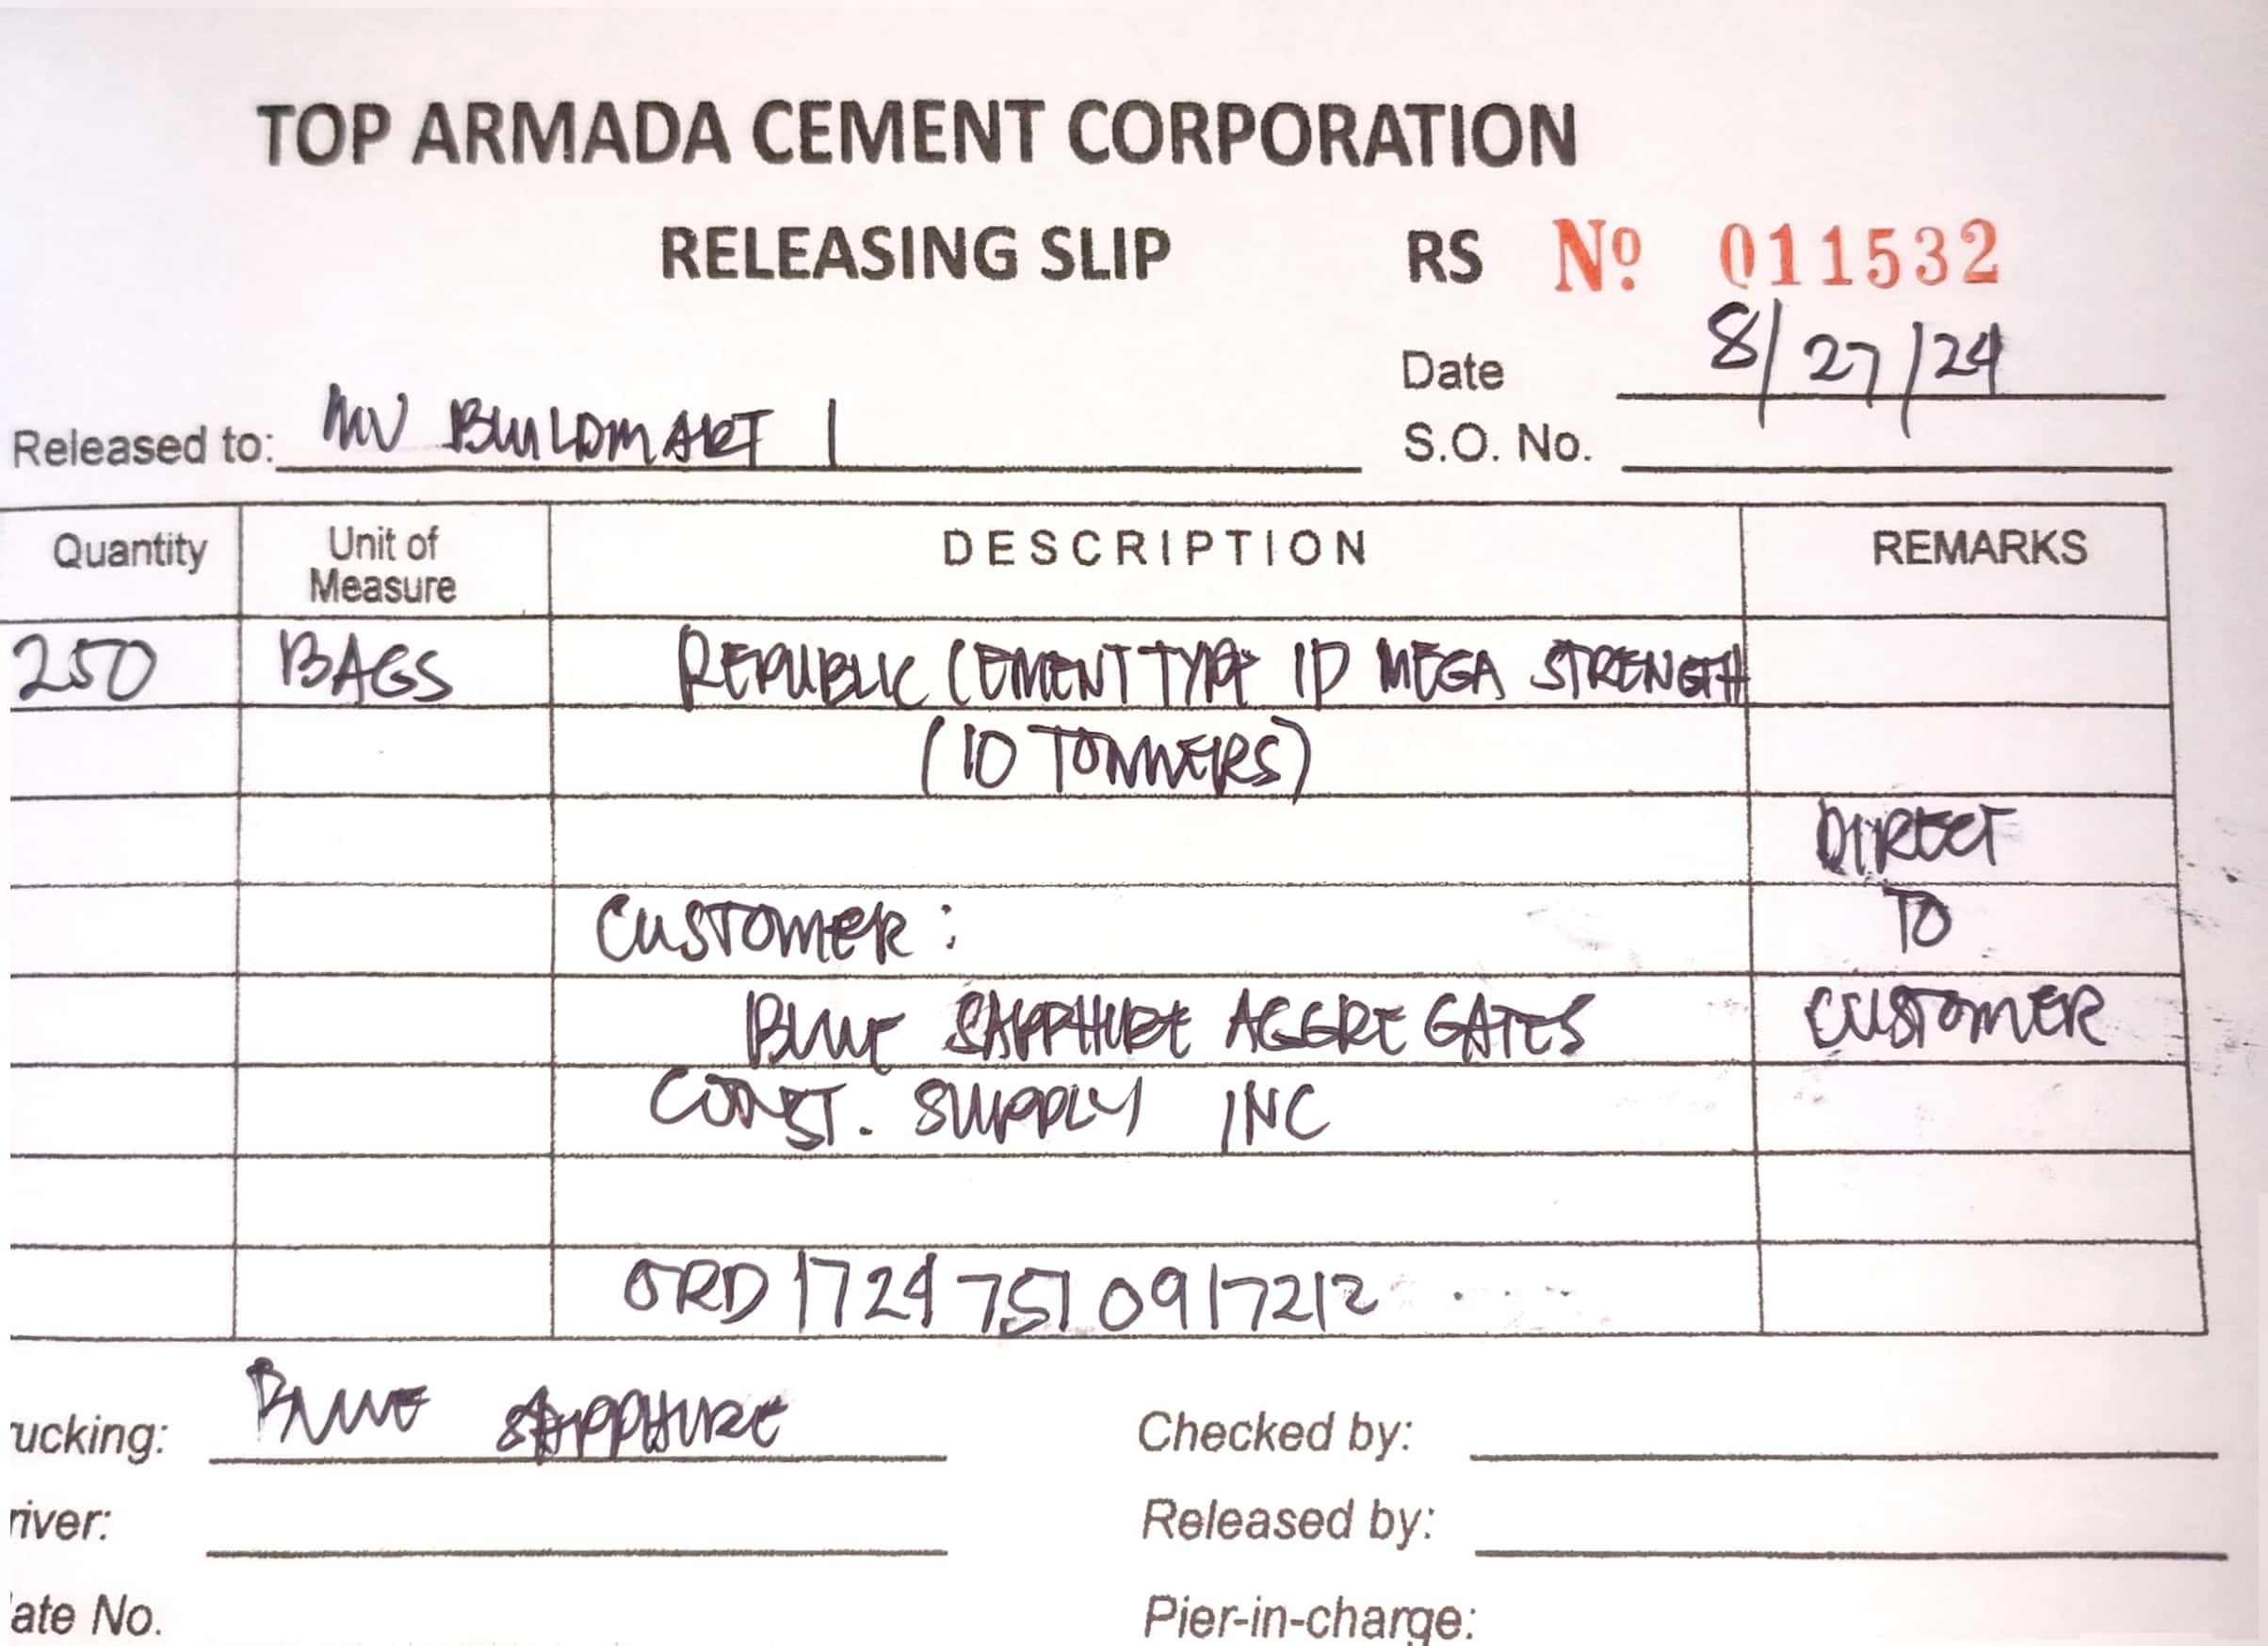 TOP ARMADA CEMENT CORPORATION
RELEASING SLIP RS Nº 011532
Date 8/27/24
Released to: MV BUILDMART 1
S.O. No.
Quantity Unit of Measure DESCRIPTION REMARKS
250 BAGS REPUBLIC CEMENT TYPE 1P MEGA STRENGTH
(10 TONNERS)
DIRECT
CUSTOMER: TO
BLUE SAPPHIRE AGGREGATES CUSTOMER
CONST. SUPPLY INC
ORD 1724751091721 2
ucking: BLUE SAPPHIRE Checked by:
river: Released by:
ate No. Pier-in-charge: